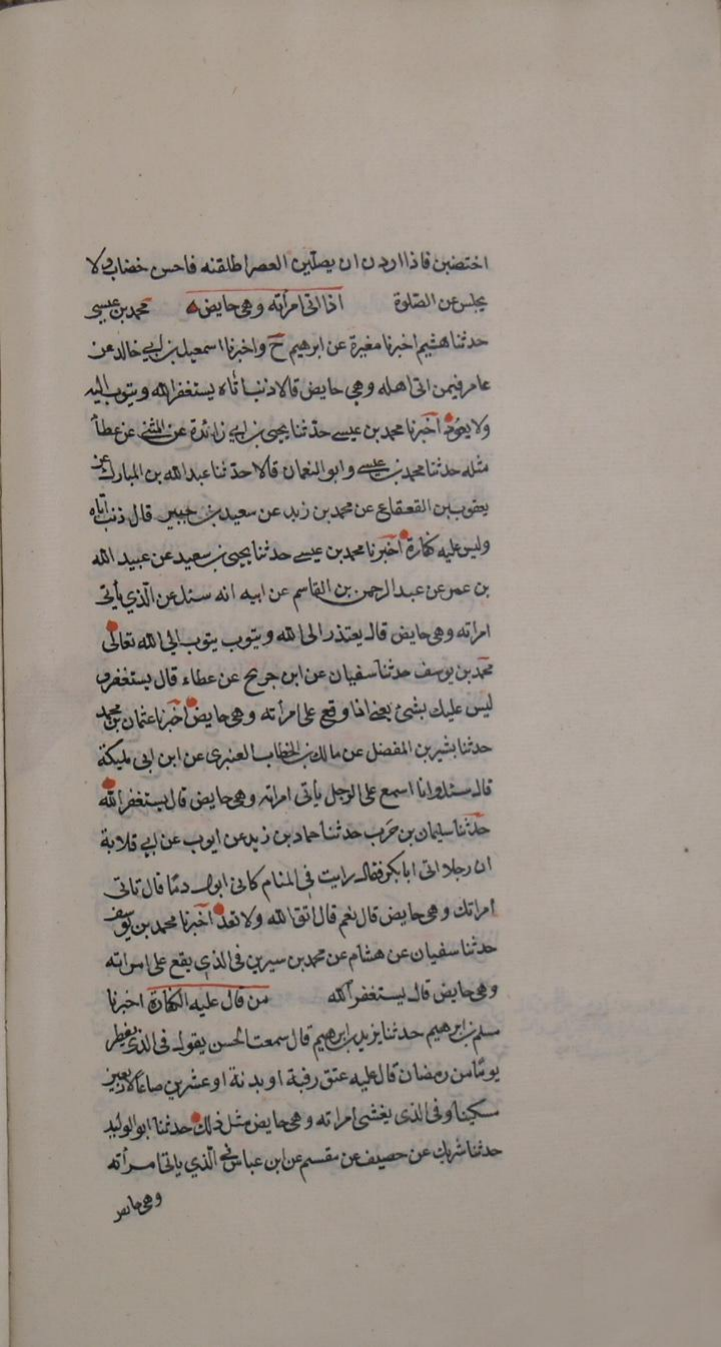 اختضبن فاذا اردن ان يصلين العصر اطلقنه فاحسن خضاب ولا
يحبس عن الصلوة اذا اتى امرأته وهي حايض محمد بن عيسى
حدثنا هشيم اخبرنا مغيرة عن ابرهيم ح واخبرنا اسمعيل بن ابي خالد عن
عامر فيمن اتى اهله وهي حايض قالا ذنبا اتاه يستغفر الله ويتوب اليه
ولا يعود اخبرنا محمد بن عيسى حدثنا يحيى بن ابي زائدة عن المثنى عن عطاء
مثله حدثنا محمد بن عيسى وابو النعمان قالا حدثنا عبد الله بن المبارك عن
يعقوب بن القعقاع عن محمد بن زيد عن سعيد بن جبير قال ذنب اتاه
وليس عليه كفارة اخبرنا محمد بن عيسى حدثنا يحيى بن سعيد عن عبيد الله
بن عمر عن عبد الرحمن بن القاسم عن ابيه انه سئل عن الذي يأتى
امراته وهي حايض قال يعتذر الى الله ويتوب يتوب الى الله تعالى
محمد بن يوسف حدثنا سفيان عن ابن جريج عن عطاء قال يستغفر
ليس عليك بشئ يعنى اذا وقع على امرأته وهي حايض اخبرنا عثمان بن محمد
حدثنا بشير بن المفضل عن مالك بن الخطاب العنبرى عن ابن ابى مليكة
قال سئل وانا اسمع على الرجل يأتى امراته وهي حايض قال يستغفر الله
حدثنا سليمان بن حرب حدثنا حماد بن زيد عن ايوب عن ابي قلابة
ان رجلا اتى ابا بكر فقال رايت فى المنام كانى ابول دما قال تاتى
امراتك وهي حايض قال نعم قال اتق الله ولا تعد اخبرنا محمد بن يوسف
حدثنا سفيان عن هشام عن محمد بن سيرين فى الذى يقع على امراته
وهي حايض قال يستغفر الله من قال عليه الكفارة اخبرنا
مسلم بن ابرهيم حدثنا يزيد بن ابرهيم قال سمعت الحسن يقول فى الذى يفطر
يوما من رمضان قال عليه عتق رقبة او بدنة او عشرين صاعا لاربعين
مسكينا وفى الذى يغشى امراته وهي حايض مثل ذلك حدثنا ابو الوليد
حدثنا شريك عن حصيف عن مقسم عن ابن عباس فى الذي ياتى امرأته
وهي حايض